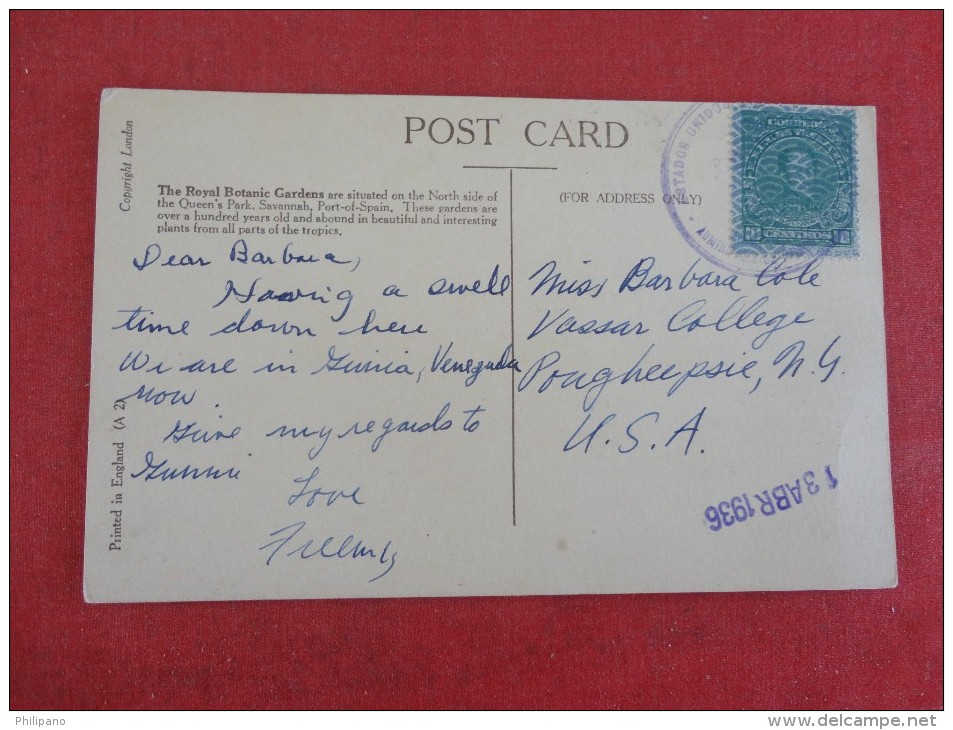 POST CARD
Copyright London
The Royal Botanic Gardens are situated on the North side of
the Queen's Park, Savannah, Port-of-Spain. These gardens are
over a hundred years old and abound in beautiful and interesting
plants from all parts of the tropics.
(FOR ADDRESS ONLY)
Dear Barbara,
Having a swell
time down here
We are in Guiria, Venezuela
now.
Give my regards to
Gunnie
Love
Miss Barbara Cole
Vassar College
Poughkeepsie, N.Y.
U.S.A.
13 ABR 1936
Printed in England (A 2)
ESTADOS UNIDOS
CORREOS
CENTIMOS
Philipano
www.delcampe.net